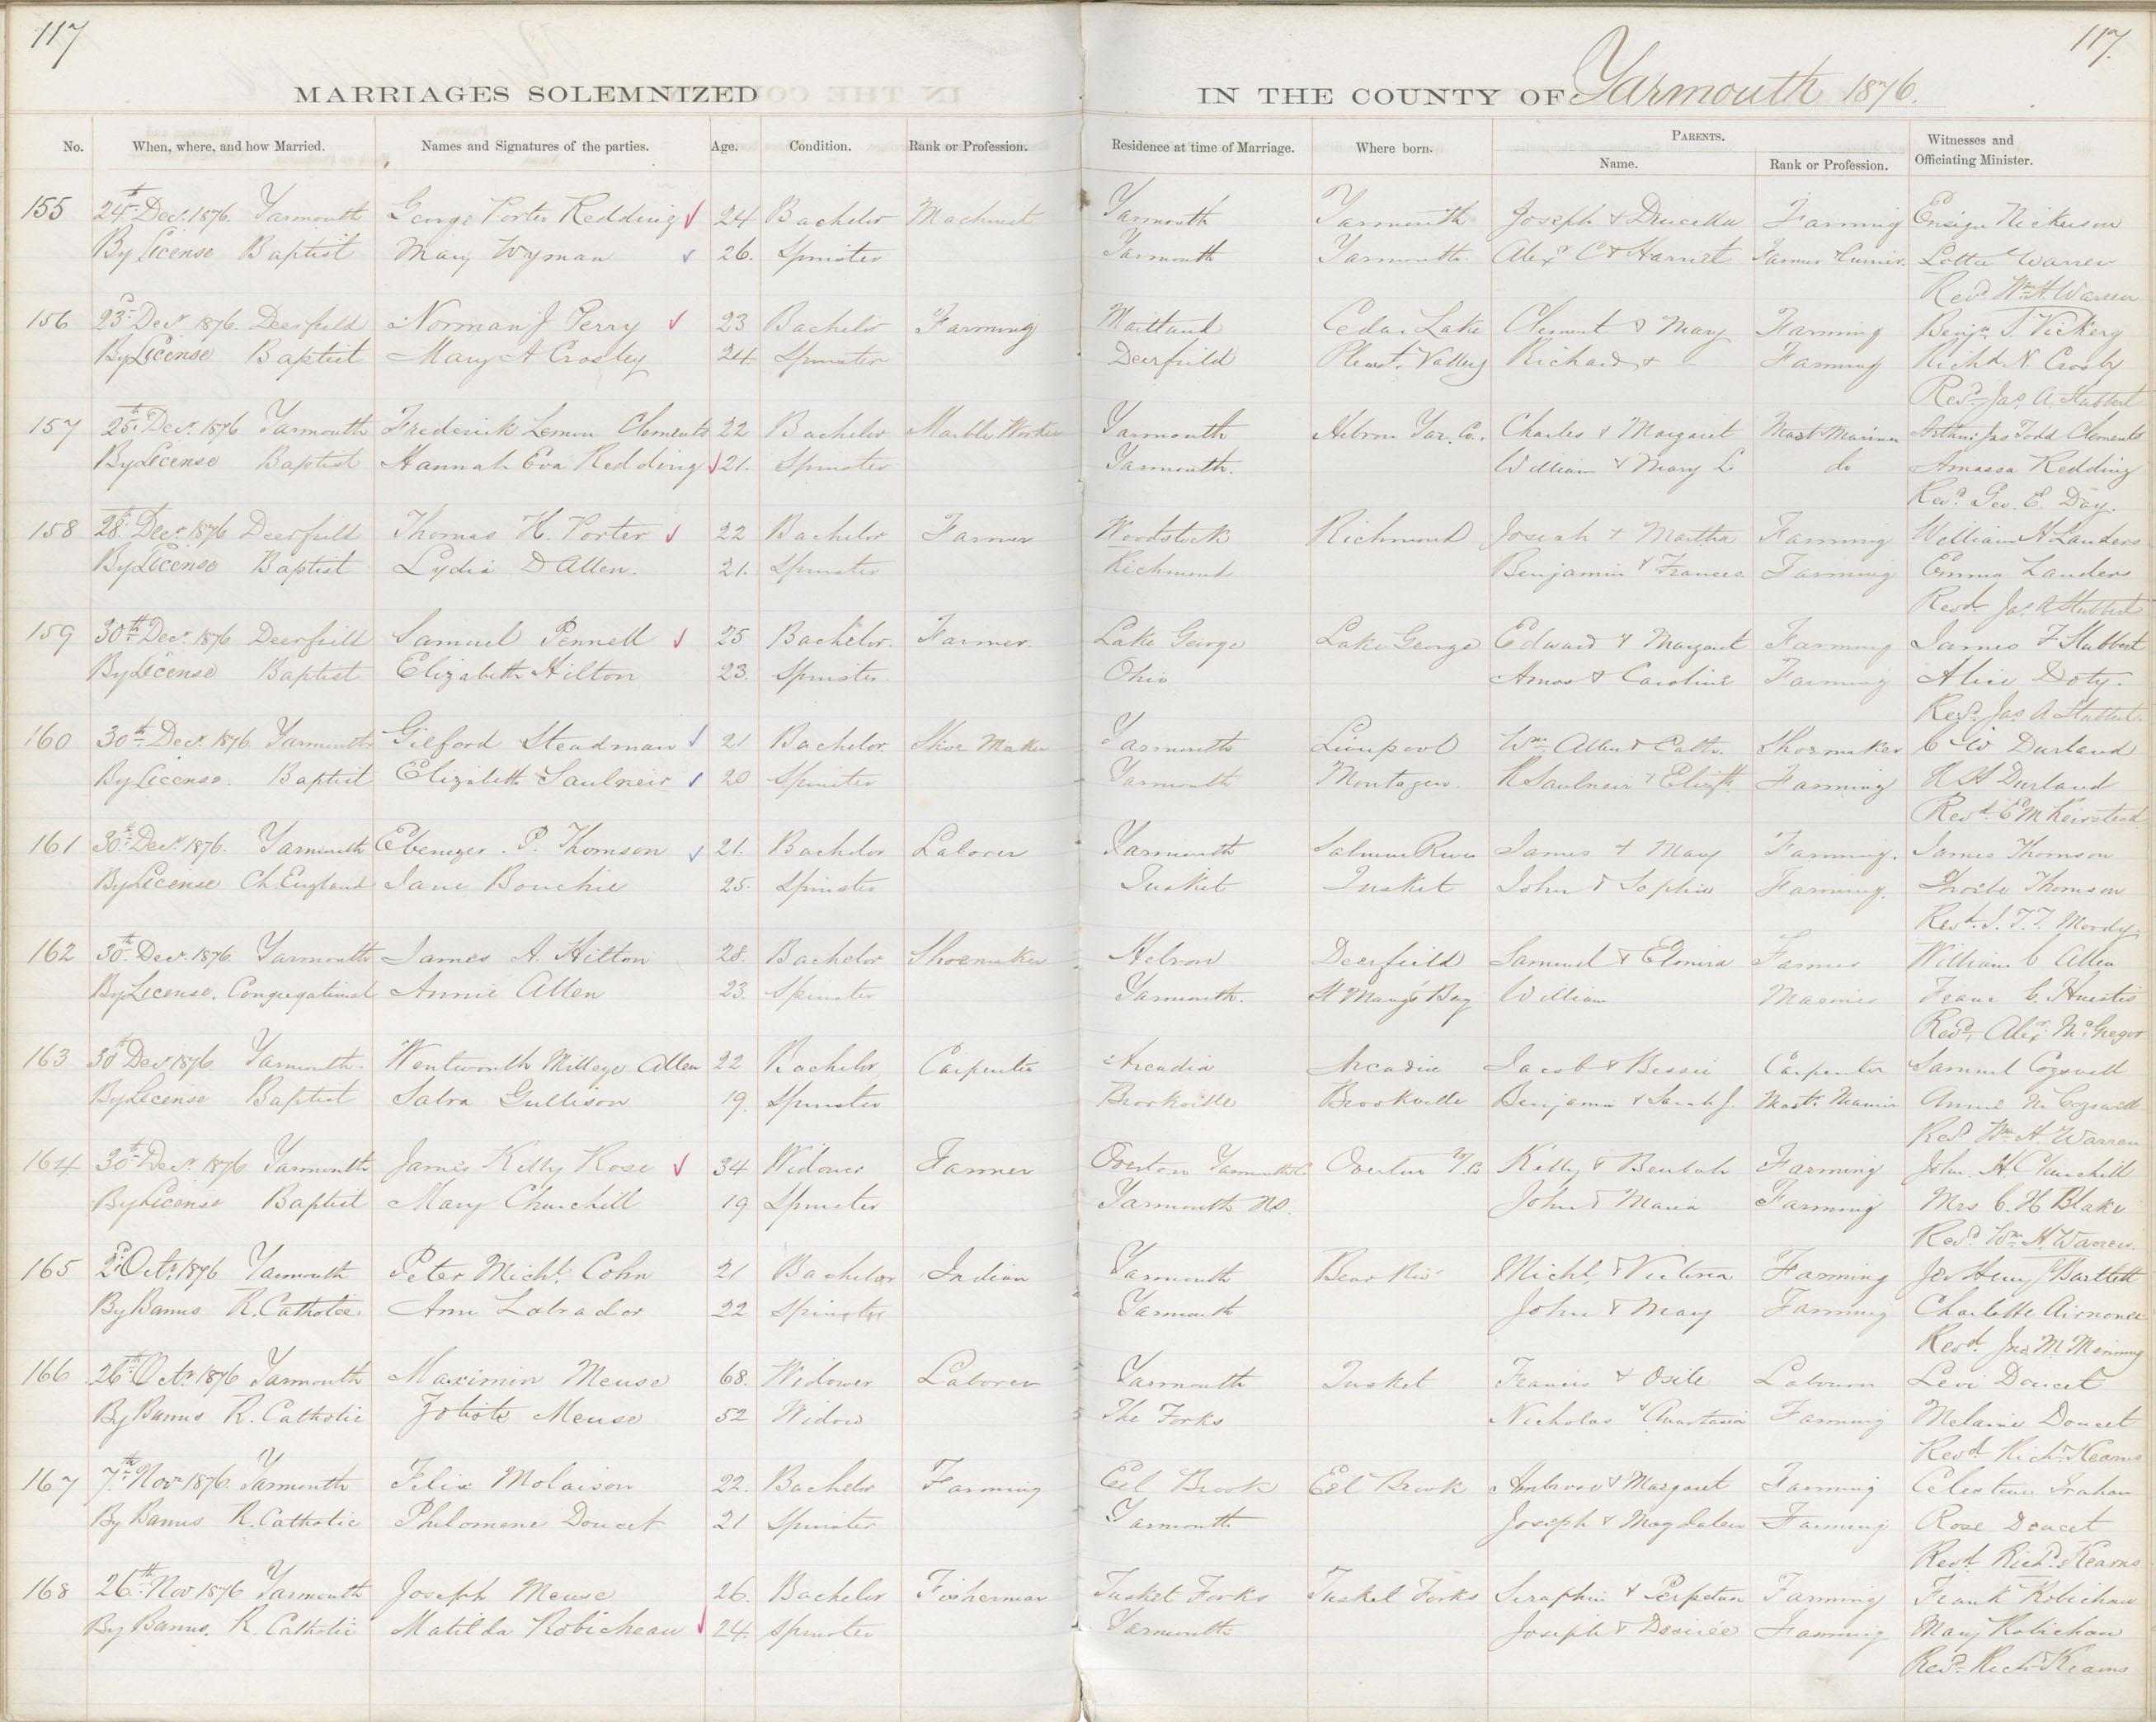 117 117.
MARRIAGES SOLEMNIZED IN THE COUNTY OF Yarmouth 1876.
No. When, where, and how Married. Names and Signatures of the parties. Age. Condition. Rank or Profession. Residence at time of Marriage. Where born. PARENTS. Witnesses and
Name. Rank or Profession. Officiating Minister.
155 24th Decr. 1876. Yarmouth George Porter Redding 24 Bachelor Machinist Yarmouth Yarmouth Joseph & Drucella Farming Ensign Nickerson
By License Baptist Mary Wyman 26. Spinster Yarmouth Yarmouth. Alexr C & Harriet Tanner & Currier. Lottie Warren
Revd Wm. H. Warren
156 23d Decr 1876. Deerfield Norman J Perry 23 Bachelor Farming Maitland Cedar Lake Clement & Mary Farming Benjn. T. Vickery
By License Baptist Mary A Crosley 24. Spinster Deerfield Pleast. Valley Richard & – Farming Richd. N. Crosby
Revd Jas. A. Stubbert
157 25th Decr. 1876 Yarmouth Frederick Lemon Clements 22 Bachelor Marble Worker Yarmouth Hebron Yar. Co. Charles & Margaret Mast Mariner Arthur Jas Todd Clements
By License Baptist Hannah Eva Redding 21. Spinster Yarmouth. William & Mary L. do Amassa Redding
Revd. Geo. E. Day.
158 28th Decr. 1876 Deerfield Thomas H. Porter 22 Bachelor Farmer Woodstock Richmond Josiah & Martha Farming William H Landers
By License Baptist Lydia D Allen. 21. Spinster Richmond Benjamin & Frances. Farming Emma Landers
Revd. Jas. A Stubbert
159 30th Decr. 1876 Deerfield Samuel Pennell 25 Bachelor. Farmer. Lake George Lake George Edward & Margaret Farming James F Stubbert
By License Baptist Elizabeth Hilton 23. Spinster. Ohio Amos & Caroline Farming Alice Doty.
Revd. Jas A Stubbert
160 30th Decr. 1876 Yarmouth Gilford Steadman 21 Bachelor. Shoe Maker Yarmouth Liverpool Wm. Allen & Cath. Shoemaker C W Durland
By License. Baptist Elizabeth Saulneir 20 Spinster Yarmouth Montegen. R Saulneir & Elizth. Farming H H Durland
Revd. E M Keirstead
161 30th Decr. 1876. Yarmouth Ebenezer. P. Thomson 21. Bachelor Laborer Yarmouth Salmon River James & Mary Farming. James Thomson
By License Ch. England Jane Bouchie 25. Spinster Tusket Tusket John & Sophia Farming. Phoebe Thomson
Revd. J. T. T. Moody.
162 30th Decr. 1876. Yarmouth James A. Hilton 28. Bachelor Shoemaker Hebron Deerfield Samuel & Elmira Farmer William C Allen
By License. Congregational Annie Allen 23. Spinster Yarmouth. St Mary's Bay William Mariner C. Huestis
Revd. Alexr. McGregor
163 30th Decr 1876 Yarmouth. Wentworth Milledge Allen 22 Bachelor Carpenter Arcadia Arcadia Jacob & Bessie Carpenter Samuel Cogswell
By License Baptist Salra Gullison 19. Spinster Brookville Brookville Benjamin & Sarah J. Mast. Marinr Annie M Cogswell
Revd Wm H Warren
164 30th Decr. 1876 Yarmouth James Kelly Rose 34 Widower Farmer Overton Yarmouth Co Overton Y. Co Kelly & Beulah Farming John. H. Churchill
By License Baptist Mary Churchill 19 Spinster Yarmouth NS. John & Maria Farming Mrs C. H Blake
Revd. Wm. H. Warren.
165 2d. Octr. 1876 Yarmouth Peter Michl. Cohn 21 Bachelor Indian Yarmouth Bear Rivr Michl. & Victoria Farming Henry Bartlett
By Banns R. Catholic Ann Labrador 22 Spinster Yarmouth John & Mary Farming Charlotte
Revd. Jno M.
166 26th Octr. 1876 Yarmouth Maximin Meuse 68. Widower Laborer Yarmouth Tusket Francis & Osile Laborer Levi Doucet
By Banns R. Catholic Meuse 52 Widow The Forks Nicholas & Anastasia Farming Melanie Doucet
Revd Richd Kearns
167 7th Novr 1876. Yarmouth Felix Molaison 22. Bachelor Farming Eel Brook Eel Brook Ambrose & Margaret Farming Celestine
By Banns R. Catholic Philomene Doucet 21 Spinster Yarmouth Joseph & Magdalen Farming Rose Doucet
Revd. Richd. Kearns
168 26th Nov 1876 Yarmouth Joseph Meuse 26. Bachelor Fisherman Tusket Forks Tusket Forks Seraphin & Perpetua Farming Frank Robichau
By Banns. R. Catholic Matilda Robicheau 24. Spinster Yarmouth Joseph & Desireé Farming Mary Robichau
Revd. Richd Kearns